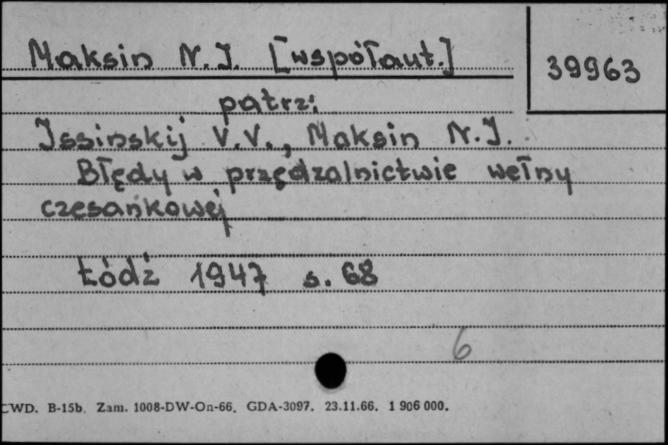 Maksin N.J. [współaut.]
39963
patrz:
Issinskij V.V., Maksin N.J.
Błędy w przędzalnictwie wełny
czesankowej
Łódź 1947 s. 68
6
CWD. B-15b. Zam. 1008-DW-On-66. GDA-3097. 23.11.66. 1 906 000.